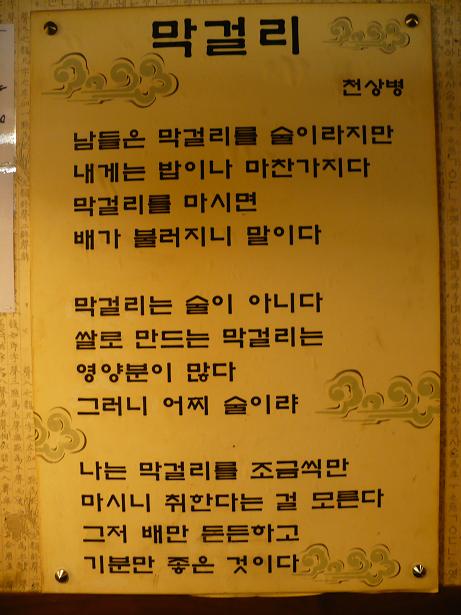 막걸리
천상병
남들은 막걸리를 술이라지만
내게는 밥이나 마찬가지다
막걸리를 마시면
배가 불러지니 말이다
막걸리는 술이 아니다
쌀로 만드는 막걸리는
영양분이 많다
그러니 어찌 술이랴
나는 막걸리를 조금씩만
마시니 취한다는 걸 모른다
그저 배만 든든하고
기분만 좋은 것이다